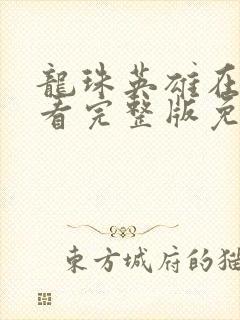 龍珠英雄在
看完整版免
東方城府的猫